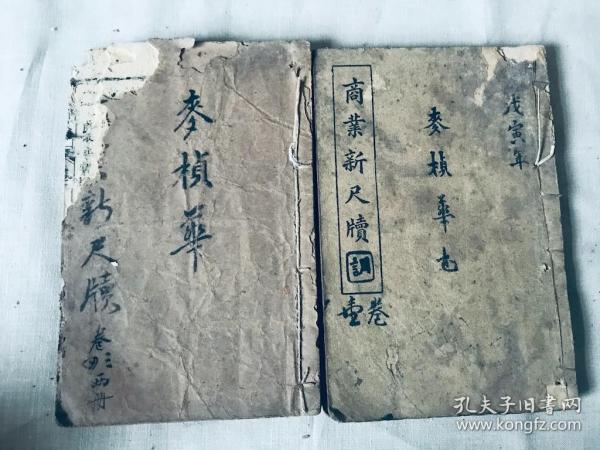 戊寅年
麥楨華
商業新尺牘
卷壹
麥楨華
新尺牘
卷三四兩冊
孔夫子旧书网
www.kongfz.com